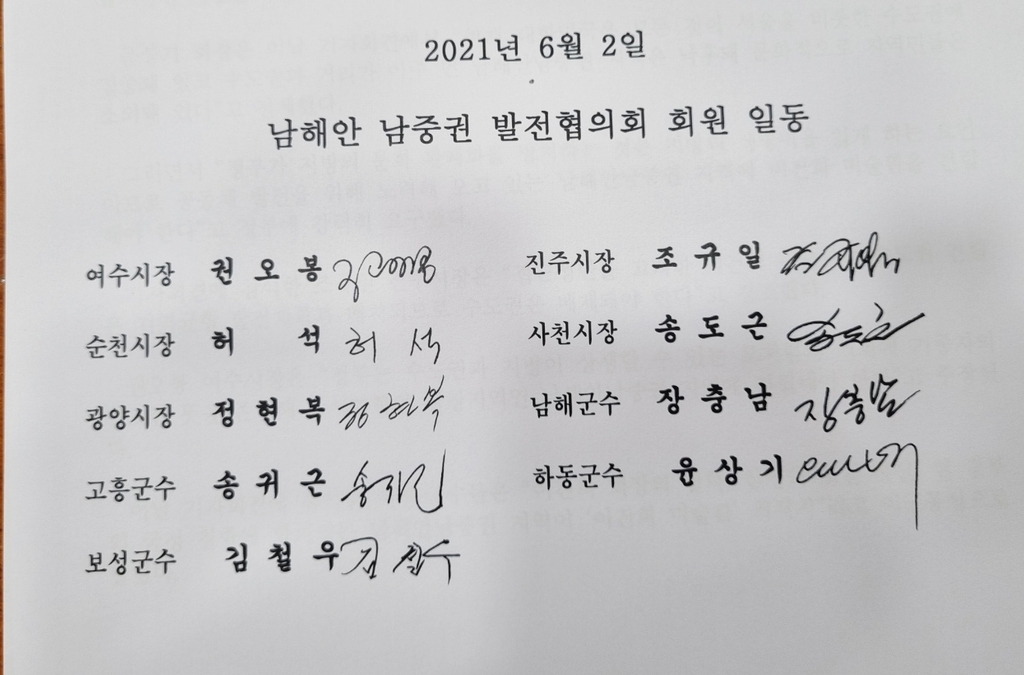 2021년 6월 2일
남해안 남중권 발전협의회 회원 일동
여수시장 권 오 봉
진주시장 조 규 일
순천시장 허 석 허 석
사천시장 송 도 근 송도근
광양시장 정 현 복 정 현복
남해군수 장 충 남 장충남
고흥군수 송 귀 근
하동군수 윤 상 기
보성군수 김 철 우 김 철우